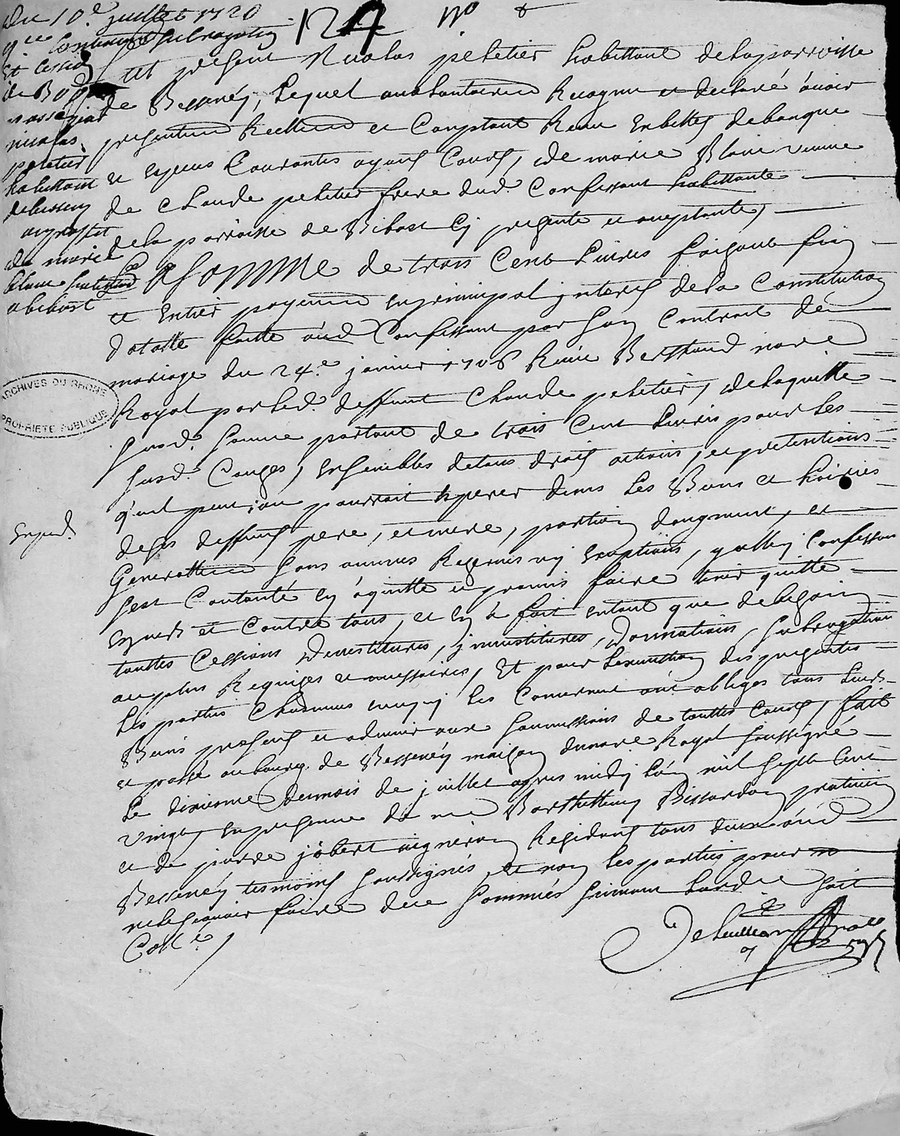 du 10e juillet 1720
124
No 8
qce contenant subrogation
Et cession
nicolas
peletier
habittant
de bessenay
au proffit
de marie
blanc
a bibost
Est present Nicolas peletier habittant de la parroisse
de Bessenay, Lequel a vollontairement Recognu et declaré avoir
presentement Receu et Comptant Reçu En billets de banque
et especes Courantes ayant Cours, de marie Blanc veuve
de Claude peletier frere dud Confessant habittante
de la parroisse de Bibost Cy presente et acceptante,
La somme de trois Cent Livres faisant fin
et Entier payement en principal interest de la Constitution
dotalle faitte aud Confessant par son Contrat de
mariage du 24e janvier 1708 Receu Berthaud notaire
Royal par led. deffunt Claude peletier, de laquelle
susd. somme partant de trois Cent Livres pour les
susd. Causes, Ensembles de tous droits actions, et pretentions
qu'il peut ou pourroit esperer dans Les Biens et hoiries
de ses deffunts pere, et mere, portion d'augment, et
Generallement sans aucunes Reserves ny Exceptions, que led. Confessant
s'est Contanté en a quitté et promis faire tenir quitte
Envers et Contre tous, et en a fait Entant que de besoin
touttes Cessions Devestitures, investitures, Donnations, subrogations
au plus Requises et necessaires, Et pour L'execution des presentes
Les parties Chacunes en ce qui Les Concernent ont obliges tous Leurs
Biens presents et advenir aux soumissions de touttes Cours, fait
et passé au bourg de Bessenay maison du notaire Royal soussigné
Le dixieme du mois de juillet apres midy L'an mil sept Cent
vingt, En presence de me Barthellemy Bissardon praticien
et de pierre jobert vigneron Residant tous deux aud
Bessenay tesmoins soussignés, et non les parties pour
ne le sçavoir faire de ce sommés suivant Lordce soit
Colle.
Exped.
ARCHIVES DU RHONE
PROPRIETE PUBLIQUE